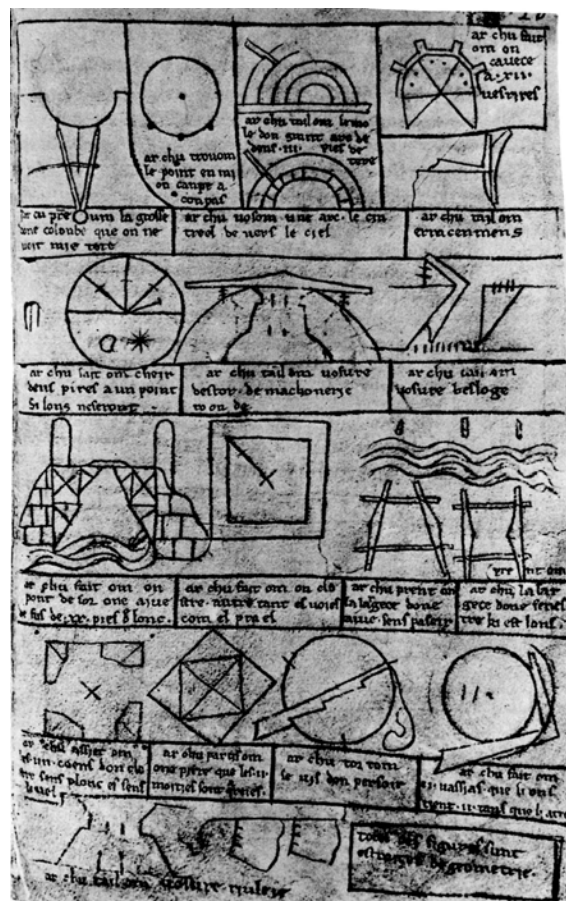 ar chu fait
om on
cavece
a . xii .
vesrires
ar chu trovom
le point en mi
on canpe a
conpas
ar chu tail om le mo
le don grant arc de
dens . iii . pies de
tere
ar cu prent om la grosse
done colonbe que on ne
voit mie tote
ar chu vosom une arc . le cin
treel de vers le ciel
ar chu tail om
erracenmens
ar chu fait om cheir
deus pires a un point
si lons ne seront .
ar chu tail om vosure
destor . de machonerie
roonde
ar chu tail om
vosure besloge
ar chu fait om on
pont de sor one aive
de fus de . xx . pies d lonc .
ar chu fait om on clo
stre . autre tant es voies
com el prael
ar chu prent om
la largece done
aive . sens paseir
ar chu prent om
la largece done fenes
tre ki est lons .
ar chu assiet om
les . iiii . coens don clo
stre sens plonc et sens
livel
ar chu partis om
one pirre que les . ii .
moities sont quareies .
ar chu tor tom
le vis don persoir
ar chu fait om
. ii . vassias que li ons
tient . ii . tans que li atre
ar chu tail om vosure riuleie
totes ces figures sunt
estraites de geometrie .